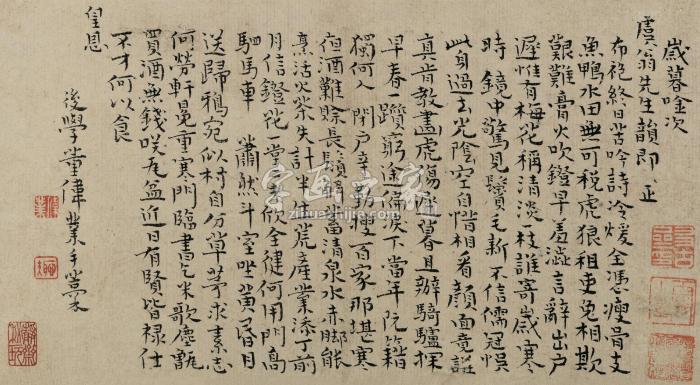 歲暮唫次
虞翁先生韻即正
布袍終日苦吟詩冷煖全憑瘦骨支
魚鴨水田無可稅虎狼租吏莫相欺
艱難膏火吹鐙早羞澁言辭出戶
遲惟有梅花稱清淡一枝誰寄歲寒
時鏡中驚見鬢毛新不信儒冠悞
此身過去光陰空自惜相看顏面竟誰
真昔教畫虎傷歲暮且辦騎驢探
早春一躓窮途偏淚下當年阮籍
獨何人閉戶辛勤瘦百家那堪寒
夜酒難賒長鬚解當清泉水赤腳能
烹活火茶失計半生荒產業添丁前
月信鐙花一堂喜欣全健何用門高
駟馬車蕭然斗室坐黃昏月
送歸鴉宛似村自分草茅求素志
何勞軒冕重寒門臨書乞米歌塵甑
買酒無錢咲瓦盆近日有賢皆祿仕
不才何以食
皇恩
後學董偉業手藁
字画之家
zihuazhijia.com